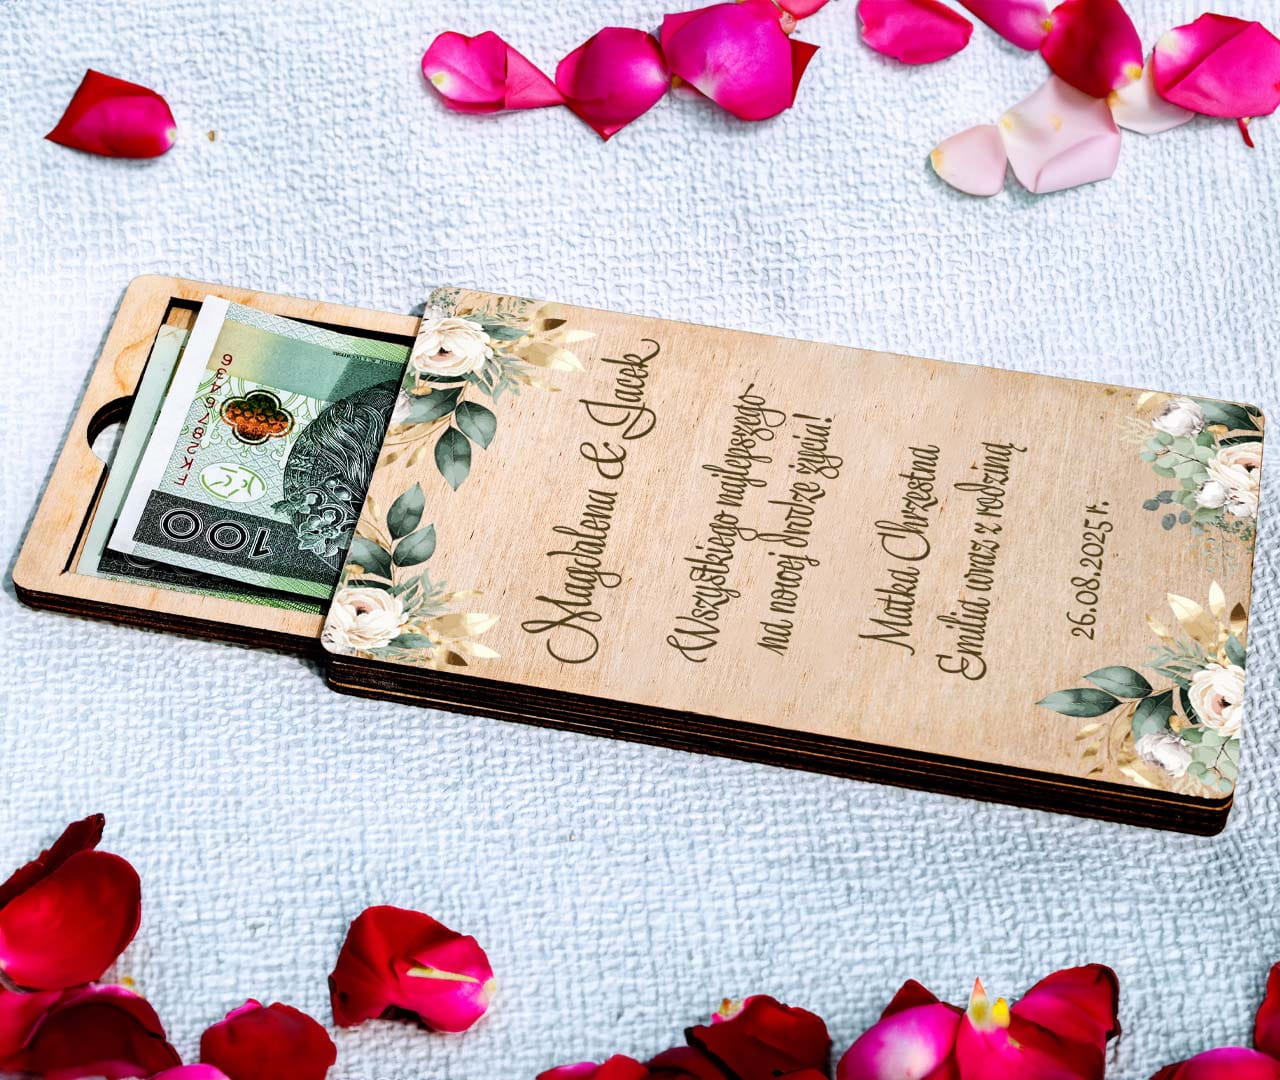 Magdalena & Jacek
Wszystkiego najlepszego
na nowej drodze życia!
Matka Chrzestna
Emilia wraz z rodziną
26.08.2025 r.
100